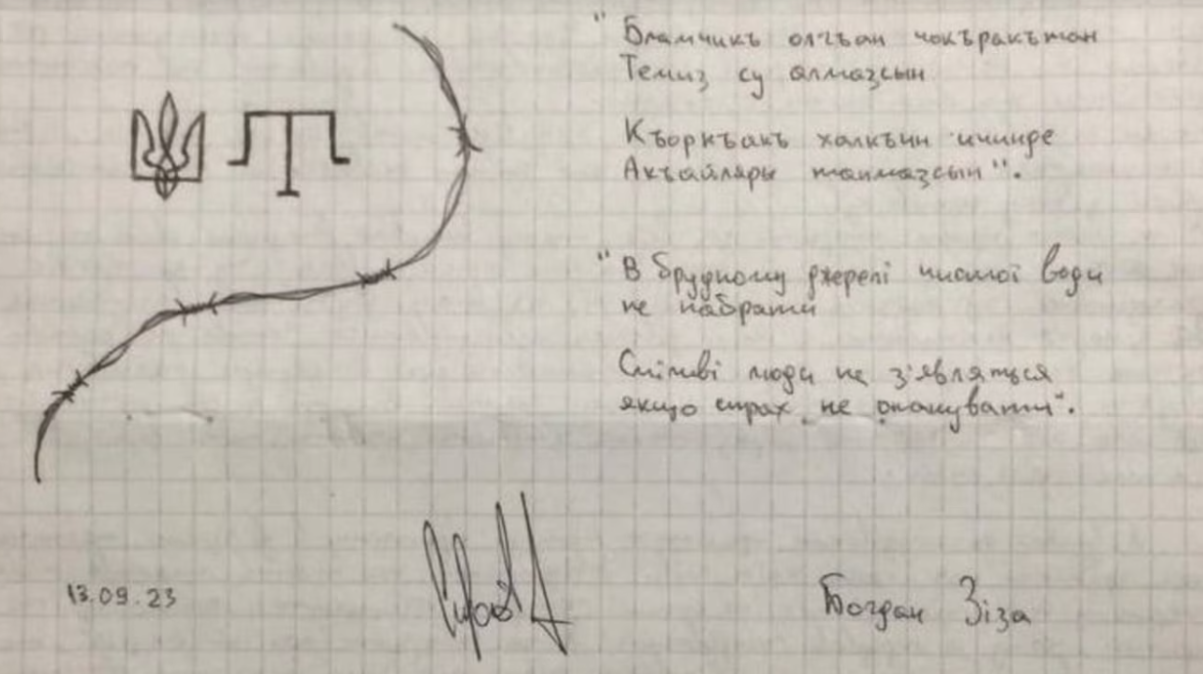 "Бламчикъ олгъан чокъракътан
Темиз су алмазсын
Къоркъакъ халкъын ичинде
Акъайляры тапмазсын".
"В брудному джерелі чистої води
не набрати
Сміливі люди не з'являться
якщо страх не опанувати".
13.09.23
Богдан Зіза